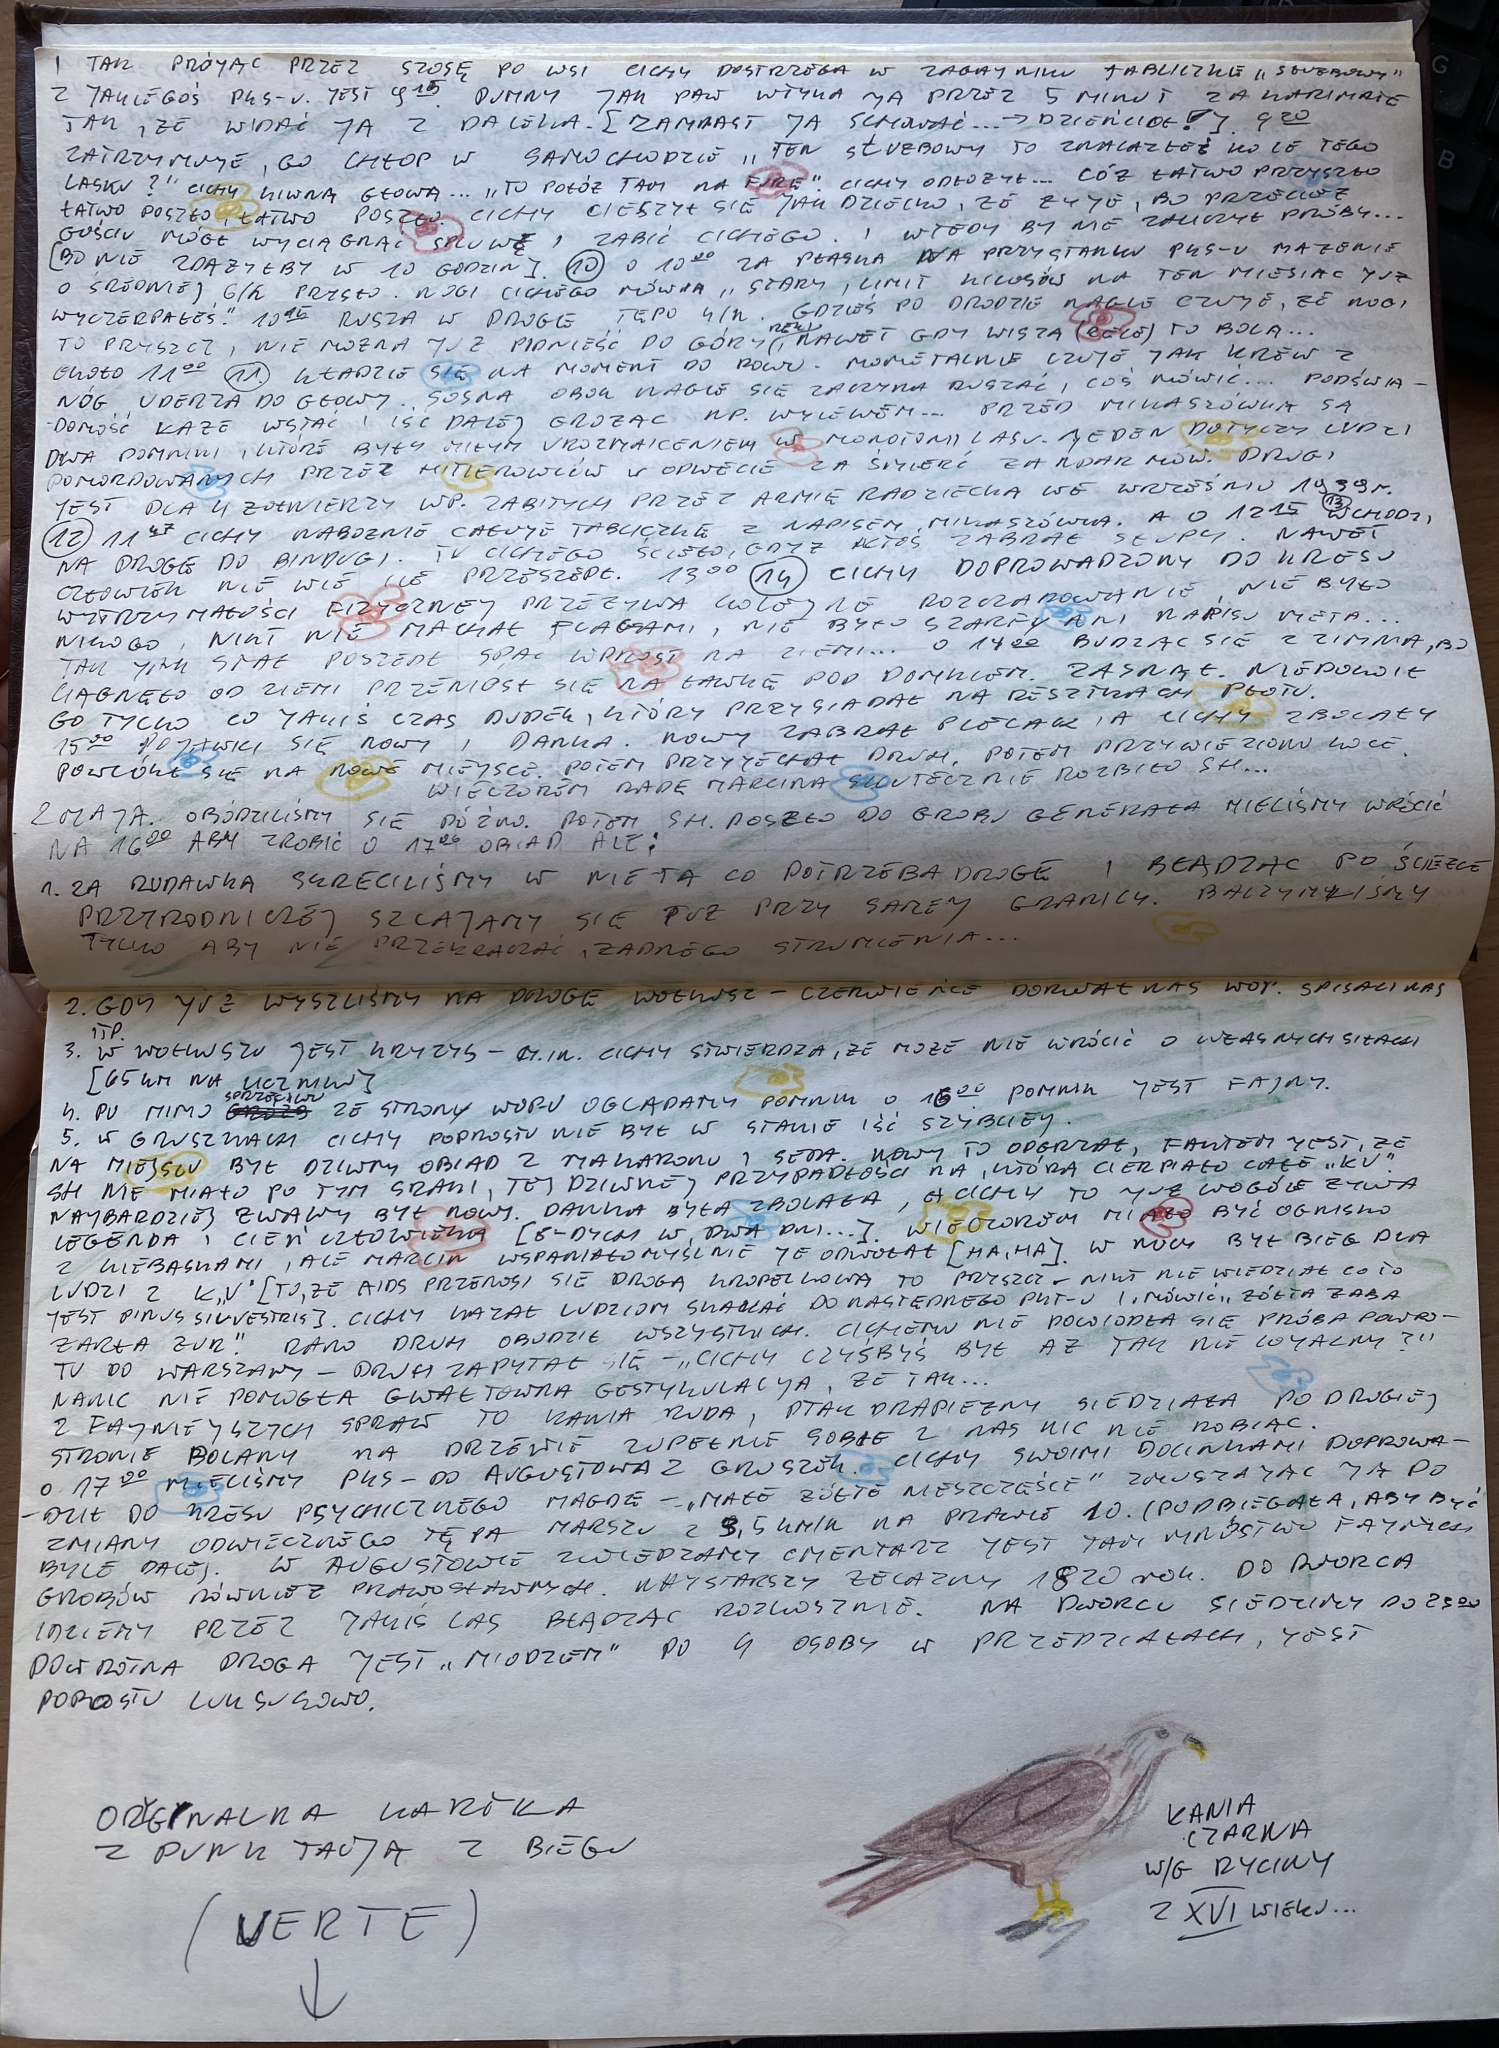 I TAK PRÓJĄC PRZEZ SZOSĘ PO WSI CICHY DOSTRZEGA W ZAGAJNIKU TABLICZKĘ „SŁUŻBOWY"
Z JAKIEGOŚ PKS-U. JEST 9 15. DUMNY JAK PAW WTYKA JĄ PRZEZ 5 MINUT ZA KARIMATĘ
TAK, ŻE WIDAĆ JĄ Z DALEKA. [ZAMIAST JĄ SCHOWAĆ...→ DZIECIUCH!]. 9 20
ZATRZYMUJE, GO CHŁOP W SAMOCHODZIE „TEN SŁUŻBOWY TO ZNALAZŁEŚ KOLE TEGO
LASKU?" CICHY KIWNĄŁ GŁOWĄ... „TO POŁÓŻ TAM NA FURĘ". CICHY ODŁOŻYŁ... CÓŻ ŁATWO PRZYSZŁO
ŁATWO POSZŁO, ŁATWO POSZŁO CICHY CIESZYŁ SIĘ JAK DZIECKO, ŻE ŻYJE, BO PRZECIEŻ
GOŚCIU MÓGŁ WYCIĄGNĄĆ SPLUWĘ I ZABIĆ CICHEGO. I WTEDY BY NIE ZALICZYŁ PRÓBY...
[BO NIE ZDĄŻYŁBY W 10 GODZIN]. 10 O 10 00 ZA PŁASKĄ NA PRZYSTANKU PKS-U MARZENIE
O ŚREDNIEJ 6/H PRYSŁO. NOGI CICHEGO MÓWIĄ „STARY, LIMIT KILOSÓW NA TEN MIESIĄC JUŻ
WYCZERPAŁEŚ." 10 15 RUSZA W DROGĘ TEMPO 4/H. GDZIEŚ PO DRODZE NAGLE CZUJE, ŻE NOGI
TO PRYSZCZ, NIE MOŻNA JUŻ PODNIEŚĆ DO GÓRY RĘKI, NAWET GDY WISZĄ (RĘCE) TO BOLĄ...
OKOŁO 11 00 11. KŁADZIE SIĘ NA MOMENT DO ROWU. MOMENTALNIE CZUJE JAK KREW Z
NÓG UDERZA DO GŁOWY. SOSNA OBOK NAGLE SIĘ ZACZYNA RUSZAĆ, COŚ MÓWIĆ.... PODŚWIA-
DOMOŚĆ KAŻE WSTAĆ I IŚĆ DALEJ GROŻĄC NP. WYLEWEM... PRZED MIKASZÓWKĄ SĄ
DWA POMNIKI, KTÓRE BYŁY MIŁYM UROZMAICENIEM W MONOTONI LASU. JEDEN DOTYCZY LUDZI
POMORDOWANYCH PRZEZ HITLEROWCÓW W ODWECIE ZA ŚMIERĆ ŻANDARMÓW. DRUGI
JEST DLA 4 ŻOŁNIERZY WP. ZABITYCH PRZEZ ARMIĘ RADZIECKĄ WE WRZEŚNIU 1939R.
12 11 47 CICHY NABOŻNIE CAŁUJE TABLICZKĘ Z NAPISEM MIKASZÓWKA. A O 12 15 13 WCHODZI
NA DROGĘ DO BINDUGI. TU CICHEGO ŚCIĘŁO, GDYŻ KTOŚ ZABRAŁ SŁUPKI. NAWET
CZŁOWIEK NIE WIE ILE PRZESZEDŁ. 13 00 14 CICHY DOPROWADZONY DO KRESU
WYTRZYMAŁOŚCI FIZYCZNEJ PRZEŻYWA KOLEJNE ROZCZAROWANIE, NIE BYŁO
NIKOGO, NIKT NIE MACHAŁ FLAGAMI, NIE BYŁO SZARFY ANI NAPISU META...
TAK JAK STAŁ POSZEDŁ SPAĆ WPROST NA ZIEMI... O 14 00 BUDZĄC SIĘ Z ZIMNA, BO
CIĄGNĘŁO OD ZIEMI PRZENIÓSŁ SIĘ NA ŁAWKĘ POD DOMKIEM. ZASNĄŁ. NIEPOKOIŁ
GO TYLKO CO JAKIŚ CZAS DUDEK, KTÓRY PRZYSIADAŁ NA RESZTKACH PŁOTU.
15 00 POJAWILI SIĘ NOWY I DANKA. NOWY ZABRAŁ PLECAK, A CICHY ZBOLAŁY
POWLÓKŁ SIĘ NA NOWE MIEJSCE. POTEM PRZYJECHAŁ DRUH. POTEM PRZYWIEZIONO KOCE.
WIECZOREM RADĘ MARCINA SKUTECZNIE ROZBIŁO SH...
2 MAJA. OBUDZILIŚMY SIĘ PÓŹNO. POTEM SH. POSZŁO DO GROBU GENERAŁA MIELIŚMY WRÓCIĆ
NA 16 00 ABY ZROBIĆ O 17 00 OBIAD ALE:
1. ZA RUDAWKĄ SKRĘCILIŚMY W NIE TĄ CO POTRZEBA DROGĘ I BŁĄDZĄC PO ŚCIEŻCE
PRZYRODNICZEJ SZLAJAMY SIĘ TUŻ PRZY SAMEJ GRANICY. BACZYLIŚMY
TYLKO ABY NIE PRZEKRACZAĆ, ŻADNEGO STRUMIENIA...
2. GDY JUŻ WYSZLIŚMY NA DROGĘ WOŁKUSZ – CZERWIEŃCE DORWAŁ NAS WOP. SPISALI NAS
ITP.
3. W WOŁKUSZU JEST KRYZYS – M.IN. CICHY STWIERDZA, ŻE MOŻE NIE WRÓCIĆ O WŁASNYCH SIŁACH
[65 KM NA LICZNIKU]
4. PO MIMO SPRZECIWU ZE STRONY WOPU OGLĄDAMY POMNIK O 16 00 POMNIK JEST FAJNY.
5. W GRUSZKACH CICHY POPROSTU NIE BYŁ W STANIE IŚĆ SZYBCIEJ.
NA MIEJSCU BYŁ DZIWNY OBIAD Z MAKARONU I SERA. NOWY TO ODGRZAŁ, FAKTEM JEST, ŻE
SH NIE MIAŁO PO TYM SRAKI, TEJ DZIWNEJ PRZYPADŁOŚCI NA, KTÓRĄ CIERPIAŁO CAŁE „KV".
NAJBARDZIEJ ŻWAWY BYŁ NOWY. DANKA BYŁA ZBOLAŁA, A CICHY TO JUŻ WOGÓLE ŻYWA
LEGENDA I CIEŃ CZŁOWIEKA [6-DYCH W DWA DNI...]. WIECZOREM MIAŁO BYĆ OGNISKO
Z KIEBASKAMI, ALE MARCIN WSPANIAŁOMYŚLNIE JE ODWOŁAŁ [HA, HA]. W NOCY BYŁ BIEG DLA
LUDZI Z „KV" [TO, ŻE AIDS PRZENOSI SIĘ DROGĄ KROPELKOWĄ TO PRYSZCZ – NIKT NIE WIEDZIAŁ CO TO
JEST PINUS SILVESTRIS]. CICHY KAZAŁ LUDZIOM SKAKAĆ DO NASTĘPNEGO PKT-U I „MÓWIĆ" „ŻÓŁTA ŻABA
ŻARŁA ŻUR". RANO DRUH OBUDZIŁ WSZYSTKICH. CICHEMU NIE POWIODŁA SIĘ PRÓBA POWRO-
TU DO WARSZAWY – DRUH ZAPYTAŁ SIĘ – „CICHY CZYŻBYŚ BYŁ AŻ TAK NIE LOJALNY?"
NA NIC NIE POMOGŁA GWAŁTOWNA GESTYKULACJA, ŻE TAK...
Z FAJNIEJSZYCH SPRAW TO KANIA RUDA, PTAK DRAPIEŻNY SIEDZIAŁA PO DRUGIEJ
STRONIE POLANY NA DRZEWIE ZUPEŁNIE SOBIE Z NAS NIC NIE ROBIĄC.
O 17 00 MIELIŚMY PKS – DO AUGUSTOWA Z GRUSZEK. CICHY SWOIMI DOCINKAMI DOPROWA-
-DZIŁ DO KRESU PSYCHICZNEGO MAGDĘ – „MAŁE ŻÓŁTE NIESZCZĘŚCIE" ZMUSZAJĄC JĄ DO
ZMIANY ODWIECZNEGO TĘPA MARSZU Z 3,5 KM/H NA PRAWIE 10. (PODBIEGAŁA, ABY BYĆ
BYLE DALEJ. W AUGUSTOWIE ZWIEDZAMY CMENTARZ JEST TAM MNÓSTWO FAJNYCH
GROBÓW RÓWNIEŻ PRAWOSŁAWNYCH. NAJSTARSZY ŻELAZNY 1820 ROK. DO DWORCA
IDZIEMY PRZEZ JAKIŚ LAS BŁĄDZĄC ROZKOSZNIE. NA DWORCU SIEDZIMY DO 23 00
POWROTNA DROGA JEST „MIODZEM" PO 4 OSOBY W PRZEDZIAŁACH, JEST
POPROSTU LUKSUSOWO.
ORYGINALNA KARTKA
Z PUNKTACJĄ Z BIEGU
(VERTE)
KANIA
CZARNA
W/G RYCINY
Z XVI WIEKU...